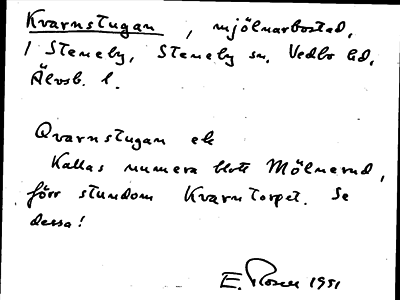 Kvarnstugan, mjölnarbostad,
i Steneby, Steneby sn, Vedbo hd,
Älvsb. l.
Qvarnstugan ek
Kallas numera blott Mölnerud,
förr stundom Kvarntorpet. Se
dessa!
E. Rosen 1951